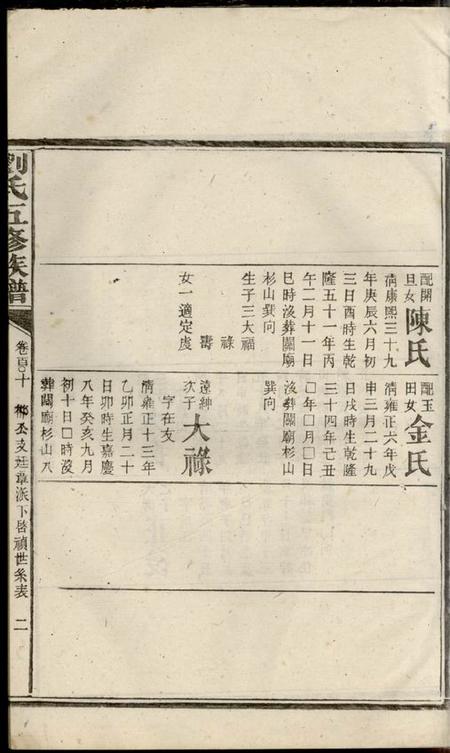 配開
旦女
陳氏
清康熙三十九
年庚辰六月初
三日酉時生乾
隆五十一年丙
午二月十一日
巳時沒葬關廟
杉山巽向
生子三大福
祿
壽
女一適定虔
配玉
田女
金氏
清雍正六年戊
申三月二十九
日戌時生乾隆
三十四年己丑
〇年〇月〇日
沒葬關廟杉山
巽向
遠紳
次子
大祿
字在友
清雍正十三年
乙卯正月二十
日卯時生嘉慶
八年癸亥九月
初十日〇時沒
葬關廟杉山八
劉氏五修族譜
卷
十
公支廷章派下啓禎世系表
二